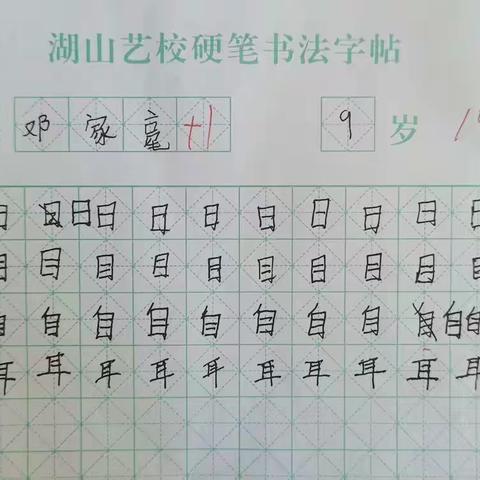 湖山艺校硬笔书法字帖
邓家毫 +1 9 岁
日 日 日 日 日 日 日 日 日 日
目 目 目 目 目 目 目 目 目 目
自 自 自 自 自 自 自 自 自 自
耳 耳 耳 耳 耳 耳 耳 耳 耳 耳